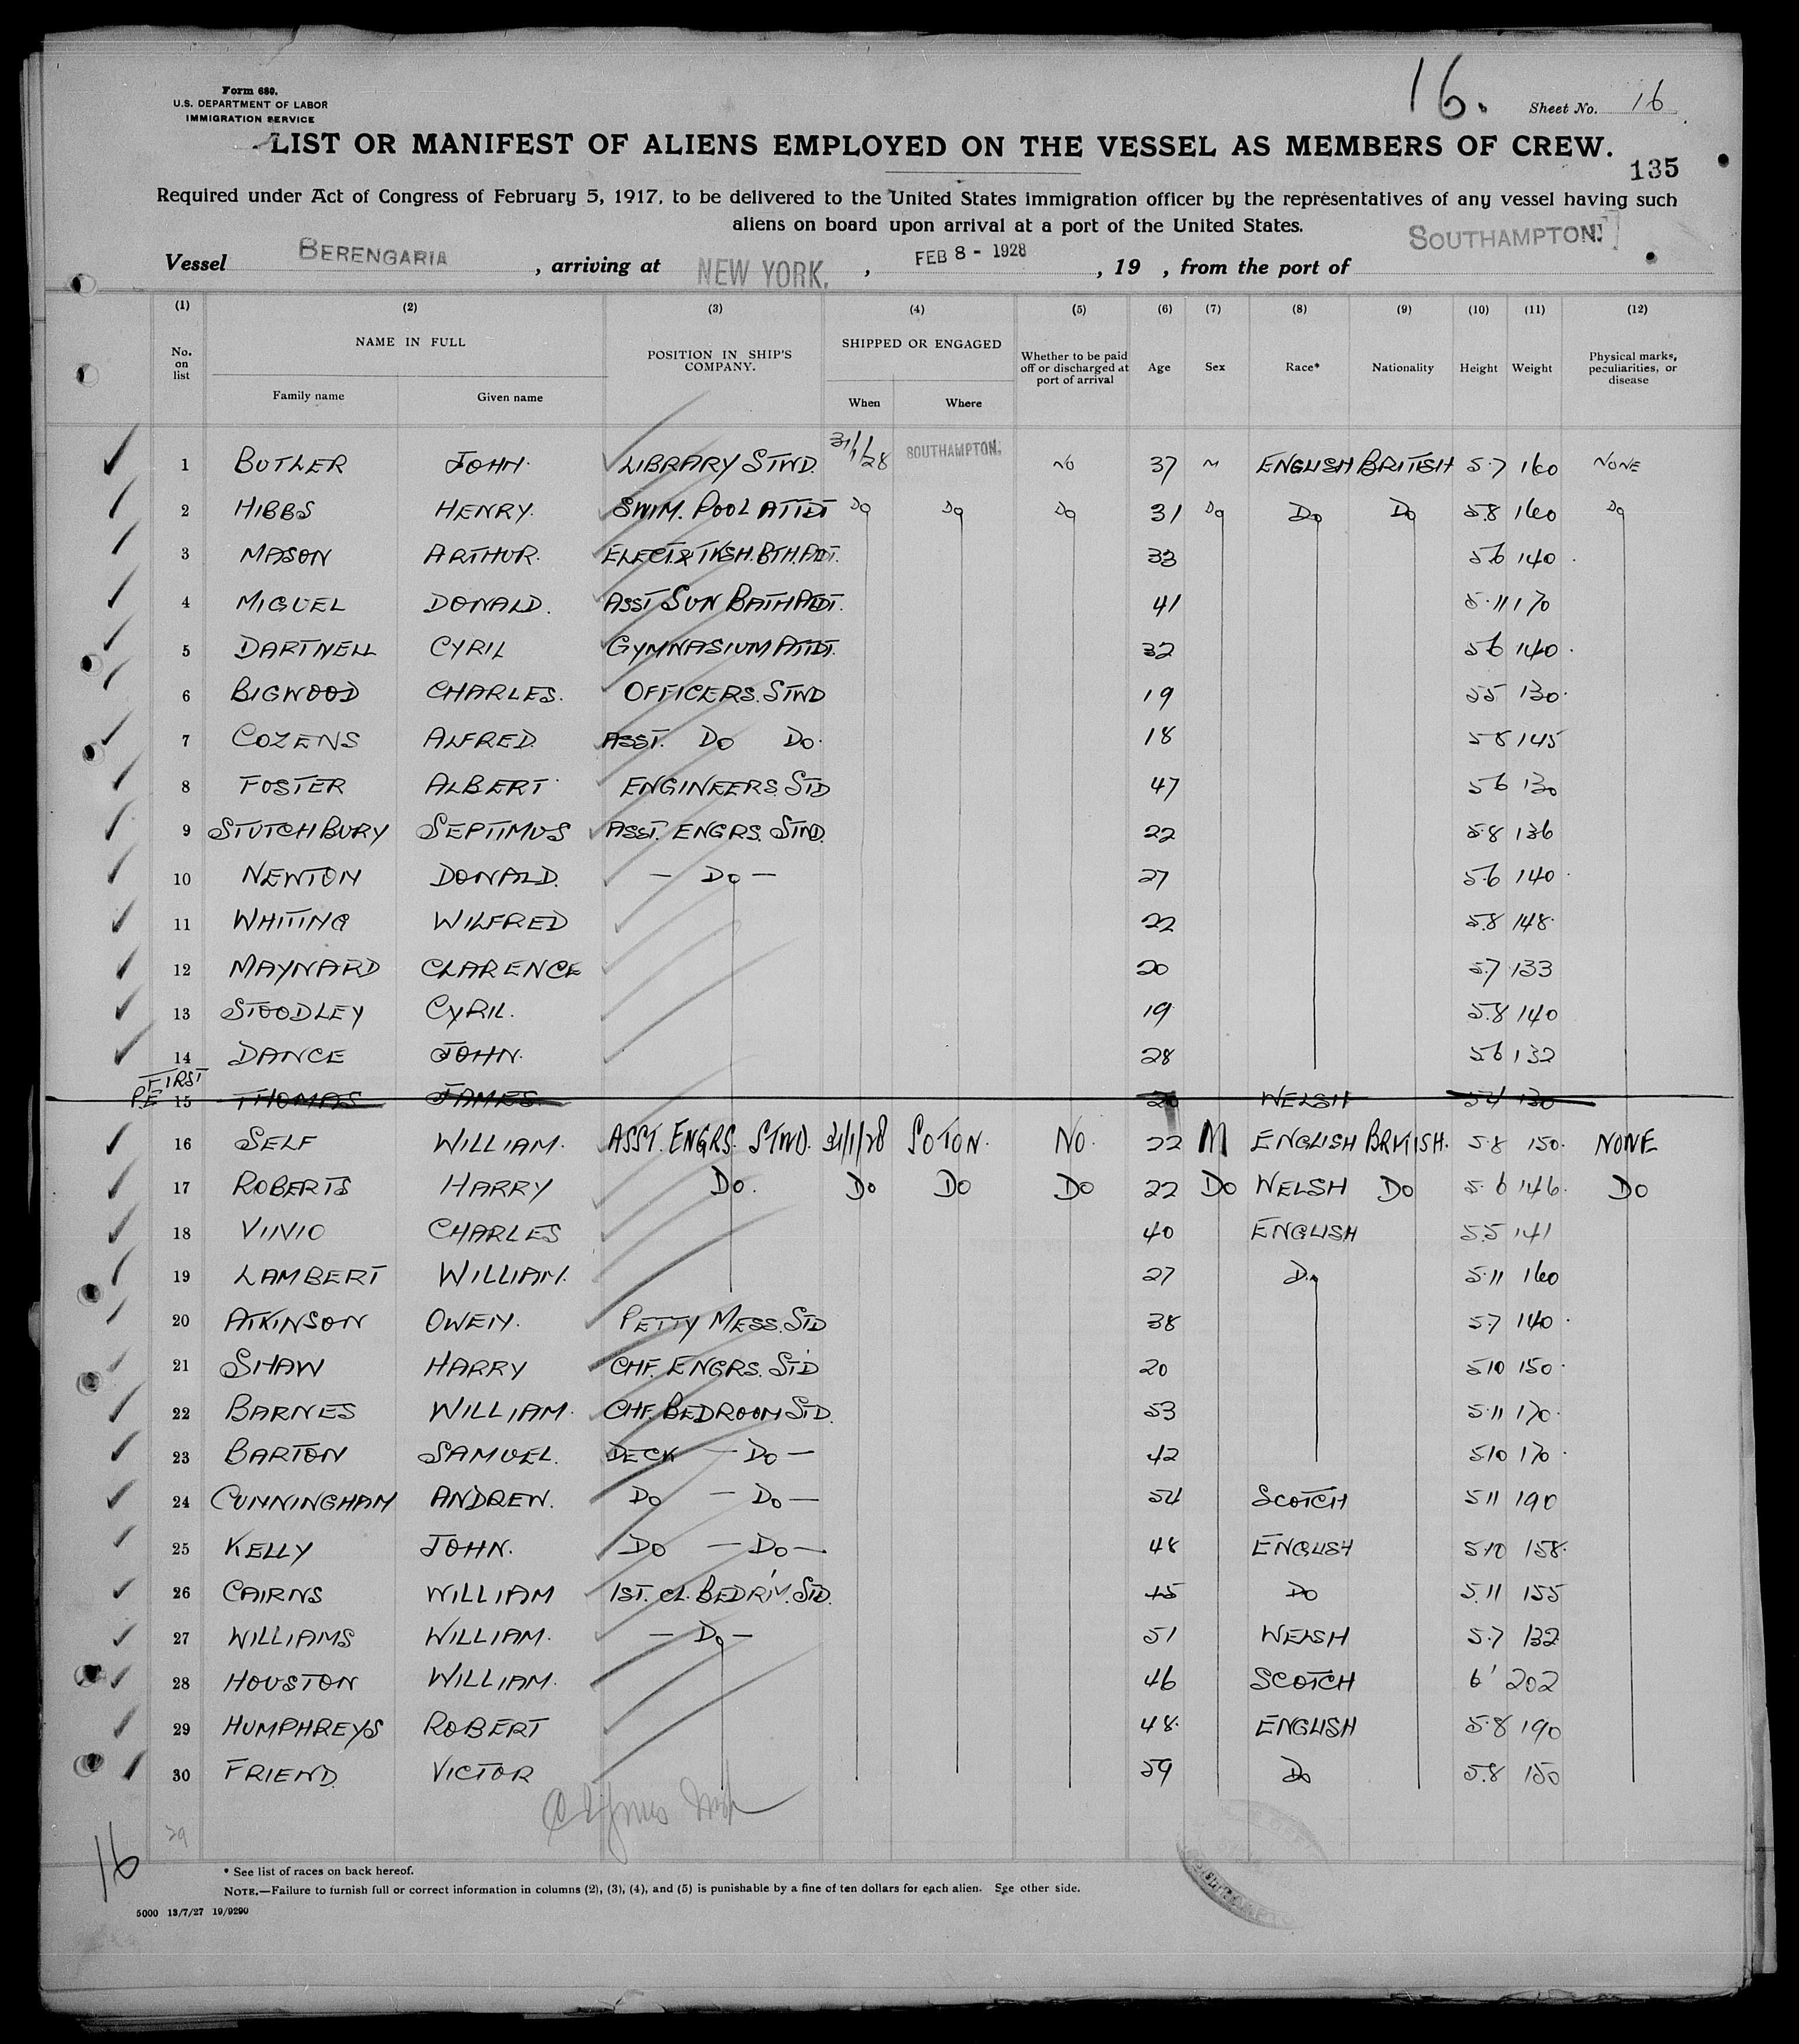 16.
Form 680.
U.S. DEPARTMENT OF LABOR
IMMIGRATION SERVICE
Sheet No. 16
LIST OR MANIFEST OF ALIENS EMPLOYED ON THE VESSEL AS MEMBERS OF CREW.
135
Required under Act of Congress of February 5, 1917, to be delivered to the United States immigration officer by the representatives of any vessel having such
aliens on board upon arrival at a port of the United States.
Vessel BERENGARIA, arriving at NEW YORK, FEB 8 - 1928, 19 , from the port of SOUTHAMPTON
(1) (2) (3) (4) (5) (6) (7) (8) (9) (10) (11) (12)
No. on list NAME IN FULL Family name Given name POSITION IN SHIP'S COMPANY. SHIPPED OR ENGAGED When Where Whether to be paid off or discharged at port of arrival Age Sex Race* Nationality Height Weight Physical marks, peculiarities, or disease
1 BUTLER JOHN. LIBRARY STWD. 31/1/28 SOUTHAMPTON. NO 37 M ENGLISH BRITISH 5.7 160 NONE
2 HIBBS HENRY. SWIM. POOL ATTDT Do Do Do 31 Do Do Do 5.8 160 Do
3 MASON ARTHUR. ELECT.& TKSH.BTH.ATDT. 33 5.6 140
4 MIGUEL DONALD. ASST SUN BATH ATDT. 41 5.11 170
5 DARTNELL CYRIL GYMNASIUM ATTDT. 32 5.6 140
6 BIGWOOD CHARLES. OFFICERS. STWD 19 5.5 130
7 COZENS ALFRED. ASST. Do Do. 18 5.8 145
8 FOSTER ALBERT ENGINEERS STD 47 5.6 130
9 STUTCHBURY SEPTIMUS ASST. ENGRS. STWD. 22 5.8 136
10 NEWTON DONALD. — Do — 27 5.6 140
11 WHITING WILFRED 22 5.8 148
12 MAYNARD CLARENCE 20 5.7 133
13 STOODLEY CYRIL. 19 5.8 140
14 DANCE JOHN. 28 5.6 132
FIRST
15 THOMAS JAMES WELSH 5.4 130
16 SELF WILLIAM. ASST. ENGRS. STWD. 31/1/28 SOTON. NO. 22 M ENGLISH BRITISH. 5.8 150. NONE
17 ROBERTS HARRY Do. Do Do Do 22 Do WELSH Do 5.6 146. Do
18 VIVIO CHARLES 40 ENGLISH 5.5 141
19 LAMBERT WILLIAM. 27 Do 5.11 160
20 ATKINSON OWEN. PETTY MESS. STD 38 5.7 140
21 SHAW HARRY CHF. ENGRS. STD 20 5.10 150
22 BARNES WILLIAM. CHF. BEDROOM STD. 53 5.11 170
23 BARTON SAMUEL. DECK — Do — 42 5.10 170
24 CUNNINGHAM ANDREW. Do — Do — 54 SCOTCH 5.11 190
25 KELLY JOHN. Do — Do — 48 ENGLISH 5.10 158
26 CAIRNS WILLIAM 1ST. CL. BEDR'M. STD. 45 Do 5.11 155
27 WILLIAMS WILLIAM. — Do — 51 WELSH 5.7 132
28 HOUSTON WILLIAM. 46 SCOTCH 6' 202
29 HUMPHREYS ROBERT 48. ENGLISH 5.8 190
30 FRIEND. VICTOR 59 Do 5.8 150
29
16
* See list of races on back hereof.
NOTE.—Failure to furnish full or correct information in columns (2), (3), (4), and (5) is punishable by a fine of ten dollars for each alien. See other side.
5000 13/7/27 19/9290